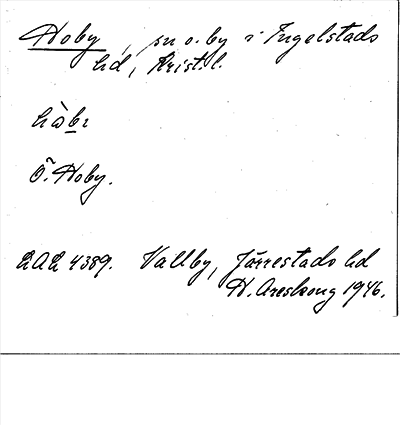 Hoby, sn o. by i Ingelstads
hd, Krist. l.
Ö. Hoby.
LAL 4389. Vallby, Järrestads hd
H. Areskoug 1946.